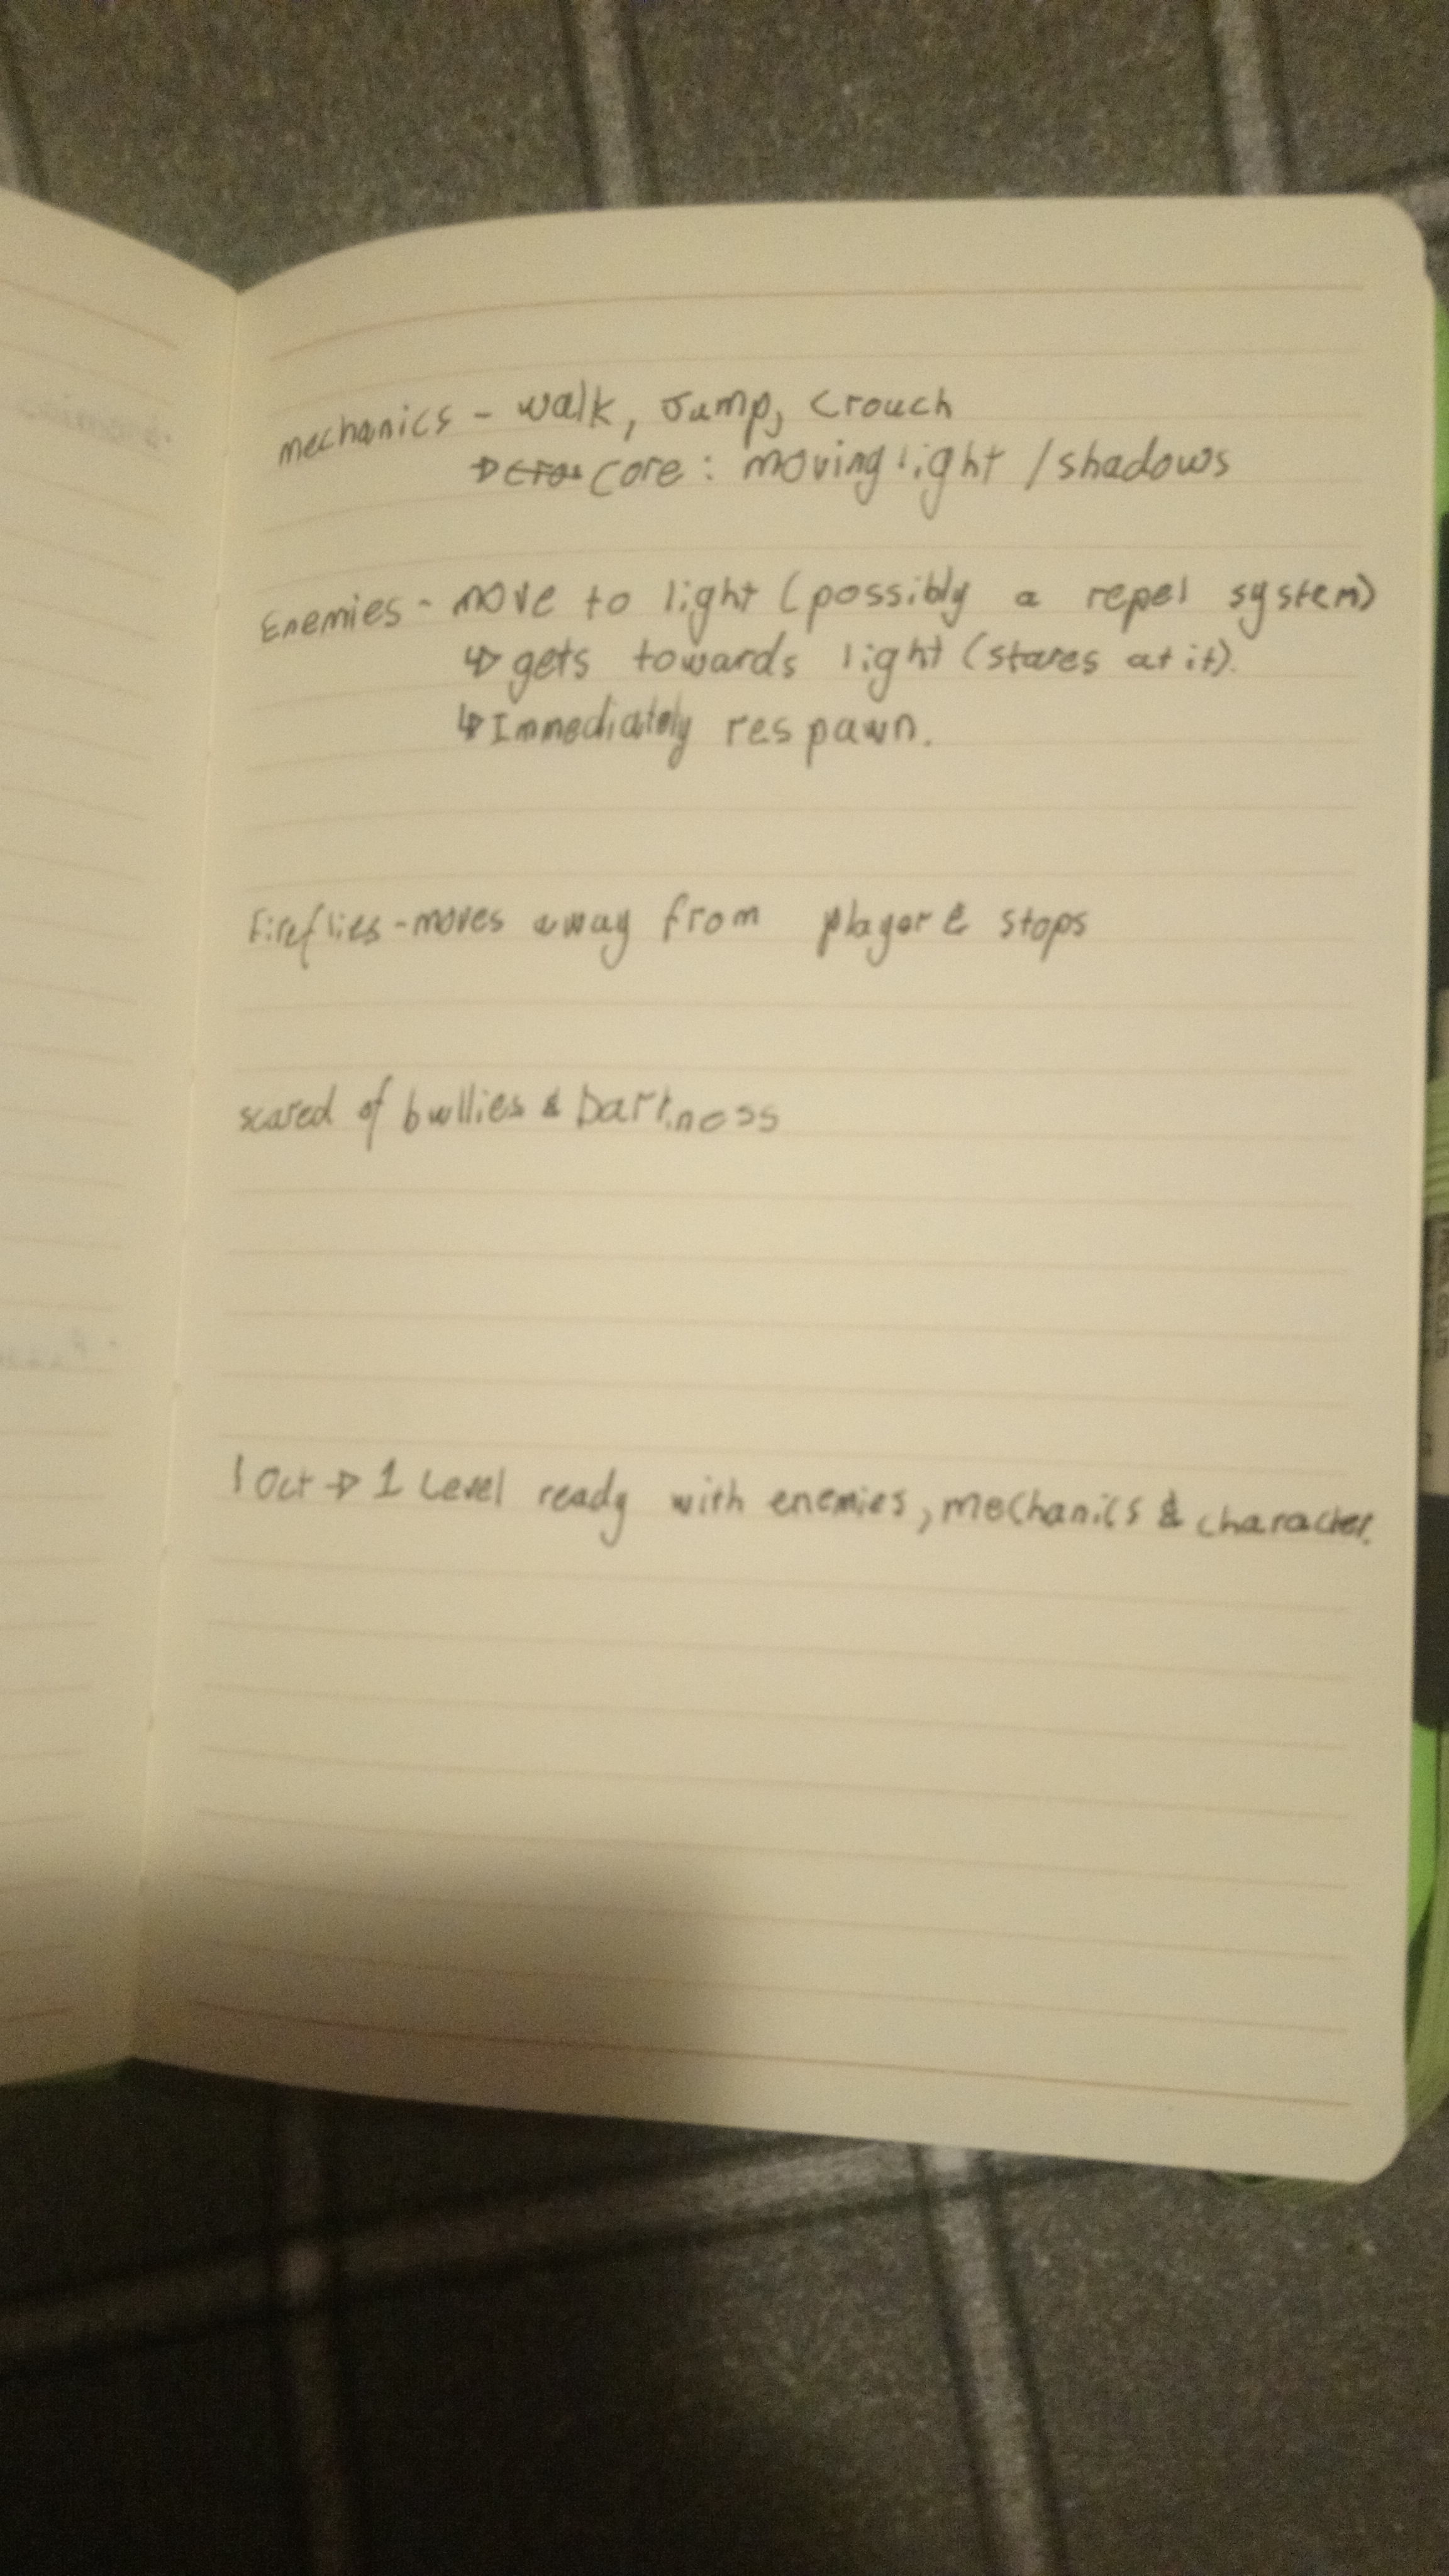 mechanics - walk, Jump, crouch
core: moving light / shadows
Enemies - move to light (possibly a repel system)
↳ gets towards light (stares at it).
↳ Immediately respawn.
Fireflies - moves away from player & stops
scared of bullies & Darkness
1 Oct → 1 Level ready with enemies, mechanics & character.